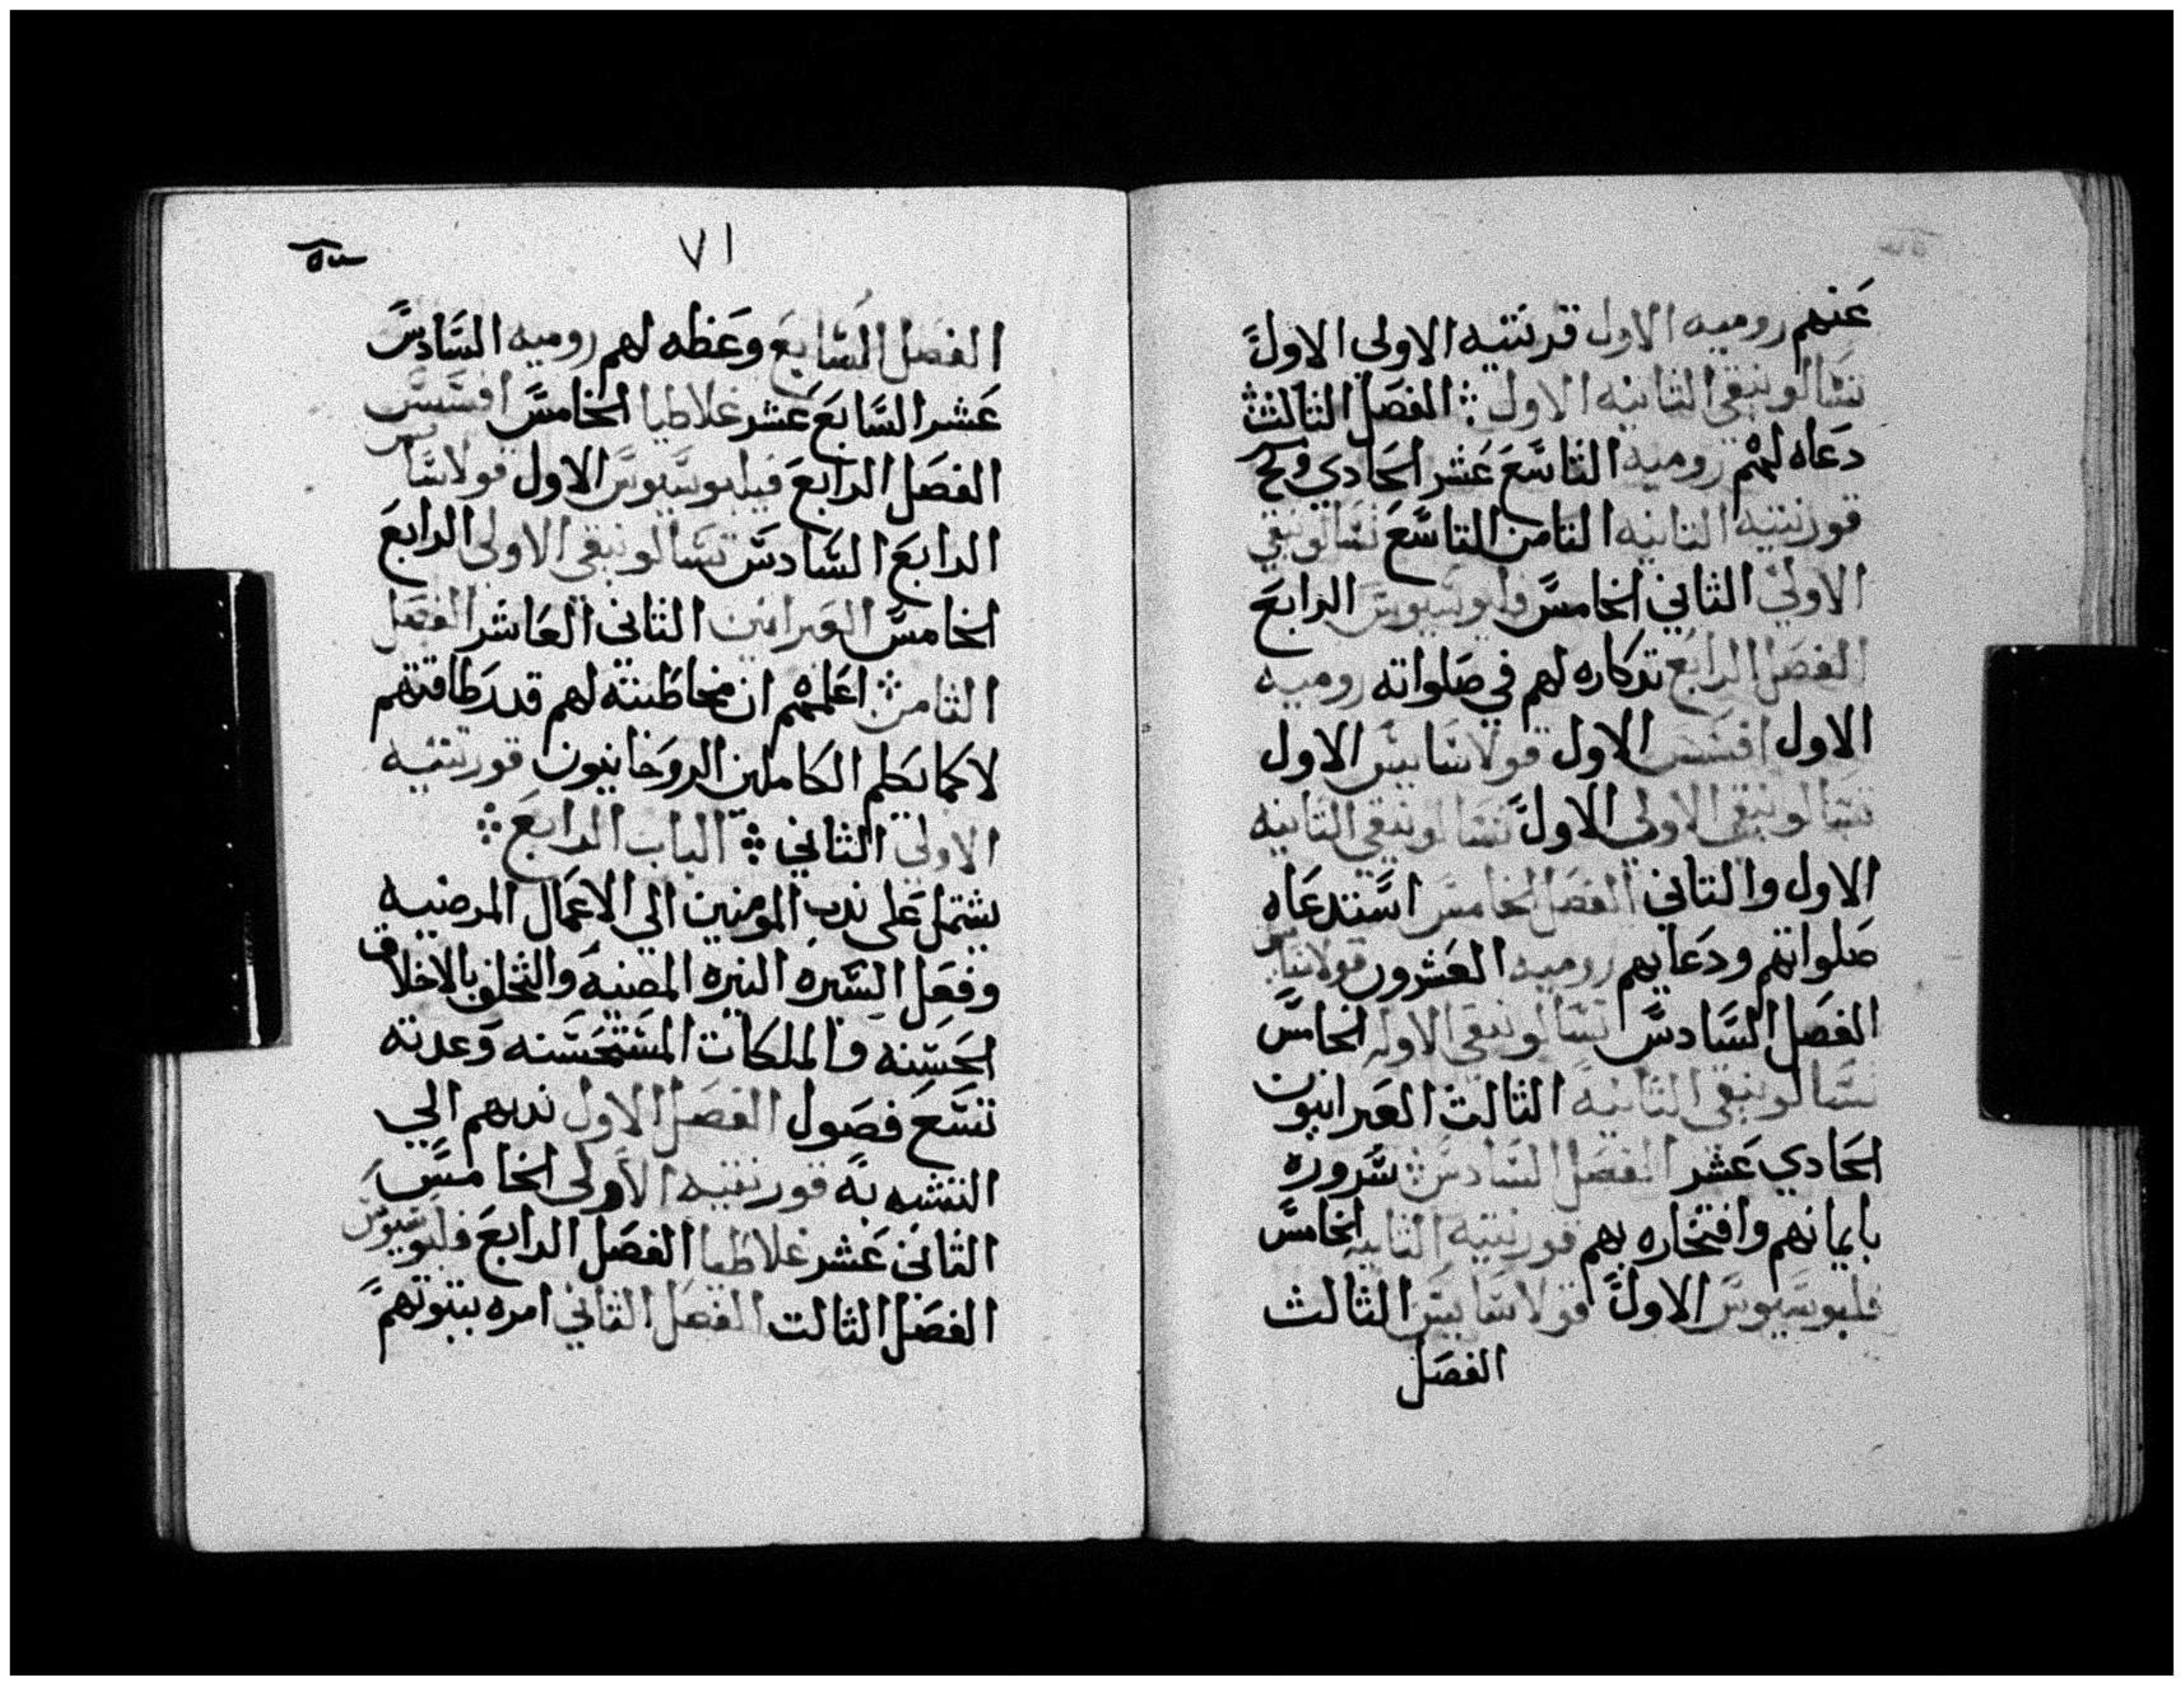 عنهم روميه الاول قرنتيه الاولي الاول
تسالونيقي الثانيه الاول ፨ الفصل الثالث
دعاه لهم روميه التاسع عشر الحادي وكج
قورنتيه الثانيه الثامن التاسع تسالونيقي
الاولي الثاني الخامس فليبوسيوس الرابع
الفصل الرابع تدكاره لهم في صلواته روميه
الاول افسس الاول قولاسايس الاول
تسالونيقي الاولي الاول تسالونيقي الثانيه
الاول والثاني الفصل الخامس استدعاه
صلواتهم ودعايهم روميه العشرون قولاسايس
الفصل السادس تسالونيقي الاوله الخامس
تسالونيقي الثانيه الثالث العبرانيون
الحادي عشر الفصل السادس سروره
بايمانهم وافتخاره بهم قورنتيه الثانيه الخامس
فليبوسيوس الاول قولاسايس الثالث
الفصل
٧١
الفصل السابع وعظه لهم روميه السادس
عشر السابع عشر غلاطيا الخامس افسس
الفصل الرابع فيلبوسيوس الاول قولاسايس
الرابع السادس تسالونيقي الاولي الرابع
الخامس العبرانين الثاني العاشر الفصل
الثامن اعلمهم ان مخاطبته لهم قدر طاقتهم
لا كما يكلم الكاملين الروحانيون قورنتيه
الاولي الثاني ፨ الباب الرابع ፨
يشتمل علي ندب المومنين الي الاعمال المرضيه
وفعل السيره النيره المضيه والتخلق بالاخلاق
الحسنه والملكات المستحسنه وعدته
تسع فصول الفصل الاول ندبهم الي
التشبه به قورنتيه الاولي الخامس
الثاني عشر غلاطيا الفصل الرابع فليبوسيوس
الفصل الثالث الفصل الثاني امره بثبوتهم